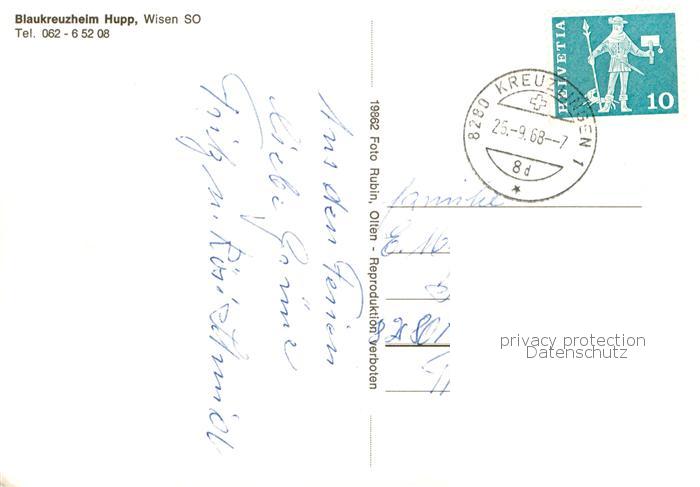 Blaukreuzheim Hupp, Wisen SO
Tel. 062 - 6 52 08
Aus den Ferien
liebe Grüsse
Fritz u. Rösi
19862 Foto Rubin, Olten - Reproduktion verboten
HELVETIA
10
8280 KREUZLINGEN 1
25.-9.68--7
8d
Familie
E. M
8280
privacy protection
Datenschutz